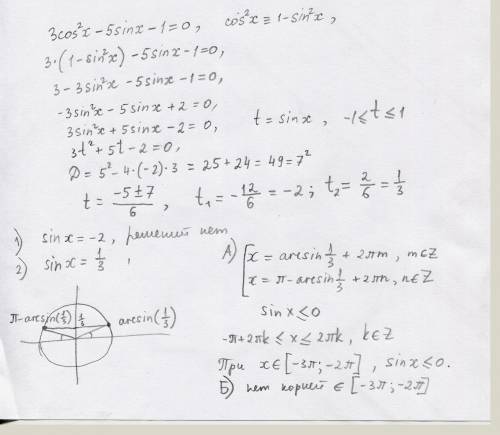 3cos²x - 5sinx - 1 = 0, cos²x ≡ 1 - sin²x,
3·(1 - sin²x) - 5sinx - 1 = 0,
3 - 3sin²x - 5sinx - 1 = 0,
-3sin²x - 5sinx + 2 = 0,
3sin²x + 5sinx - 2 = 0, t = sinx, -1 ≤ t ≤ 1
3t² + 5t - 2 = 0,
D = 5² - 4·(-2)·3 = 25 + 24 = 49 = 7²
t = (-5 ± 7)/6, t₁ = -12/6 = -2; t₂ = 2/6 = 1/3
1) sinx = -2, решений нет
2) sinx = 1/3,
А) [x = arcsin 1/3 + 2πm, m∈Z
x = π - arcsin 1/3 + 2πn, n∈Z
π - arcsin(1/3) 1/3 arcsin(1/3)
sinx ≤ 0
-π + 2πk ≤ x ≤ 2πk, k∈Z
При x∈[-3π; -2π], sinx ≤ 0.
Б) нет корней ∈ [-3π; -2π]